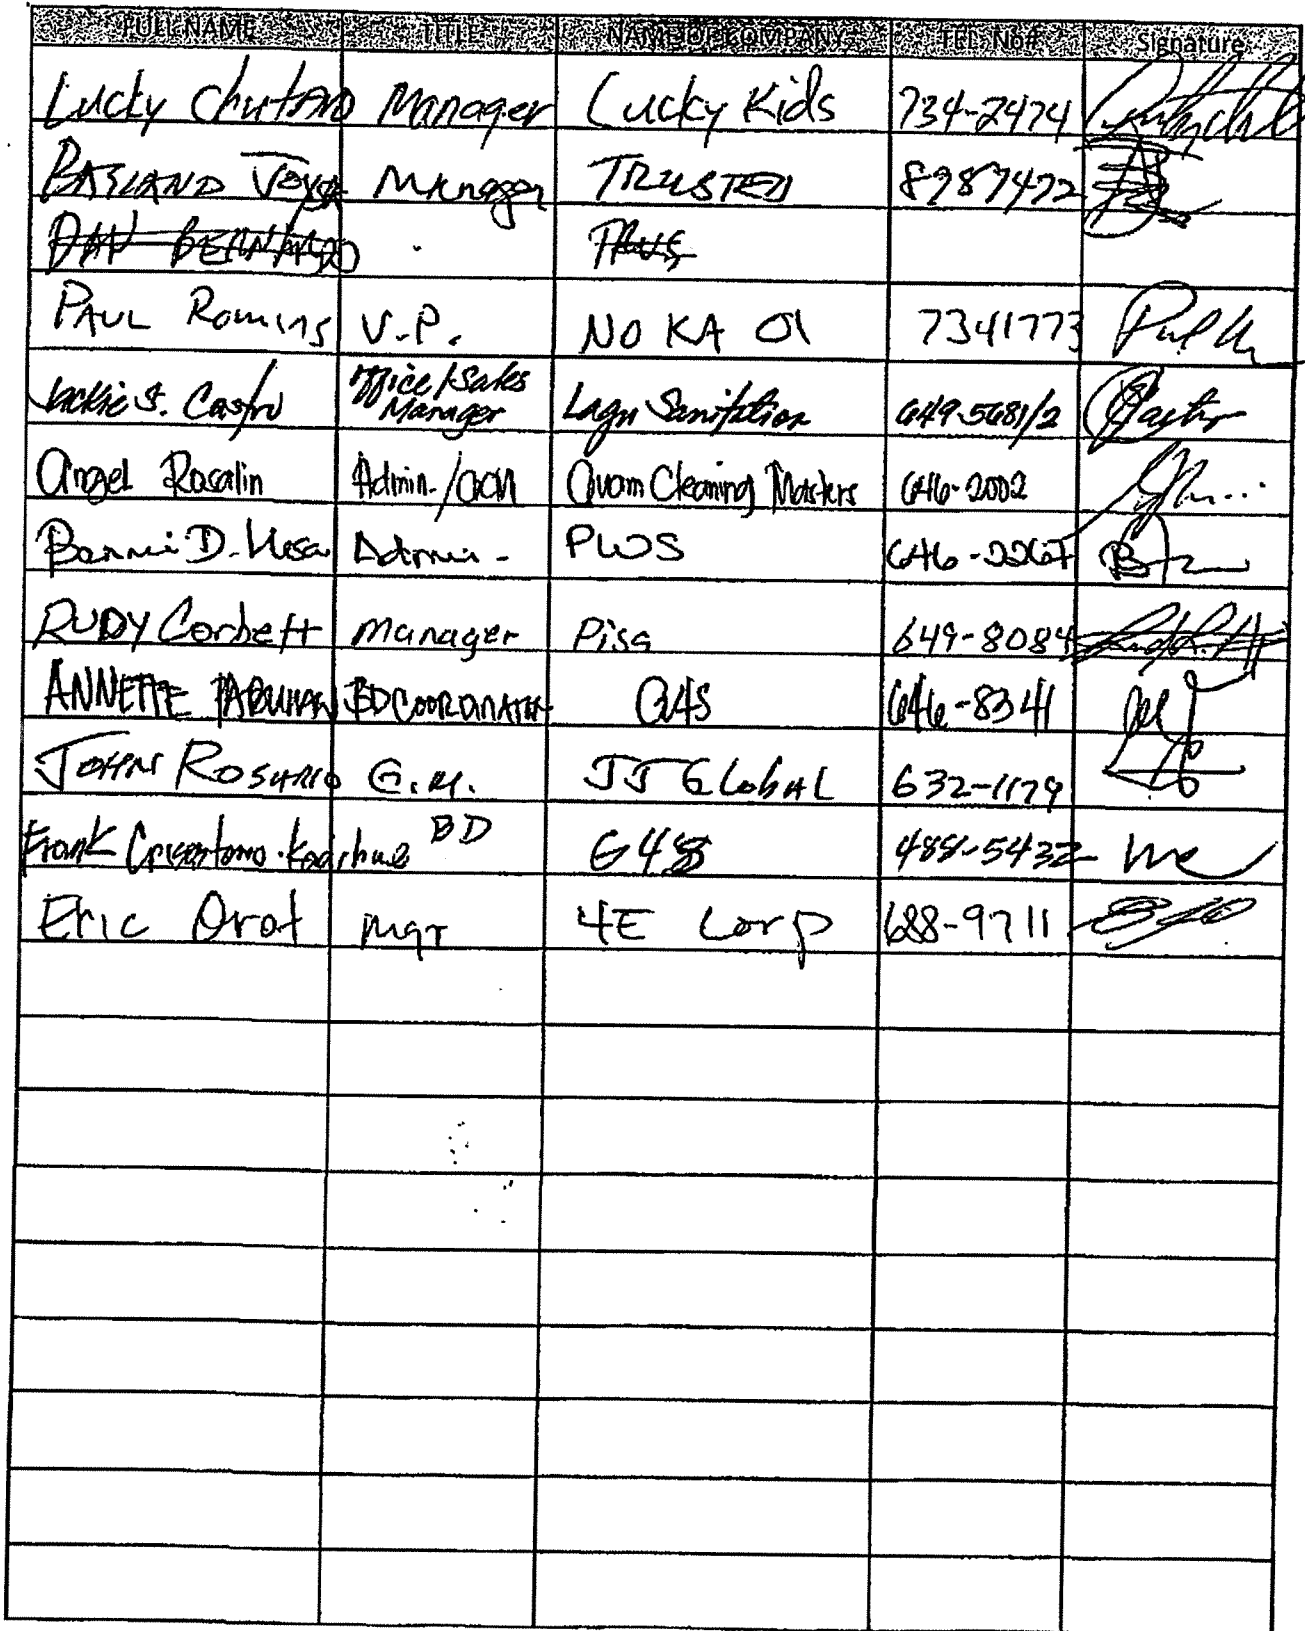 FULL NAME TITLE NAME OF COMPANY TEL. No# Signature
Lucky Manager Lucky Kids 734-2474
Manager TRUSTED 8987472
DAN BERNARDO
PAUL V.P. NO KA OI 7341773
Jackie S. Castro Office/Sales Manager Lagu Sanitation 649-5681/2
Angel Rosalin Admin./ Guam Cleaning Masters 646-2002
D. Admin. PWS 646-2267
RUDY Corbett Manager Pisa 649-8084
ANNETTE BD COORDINATOR G4S 646-8341
JOHN ROSARIO G.M. JJ GLObAL 632-1179
Frank BD G4S 488-5432
Eric Mgr 4E Corp 688-9711